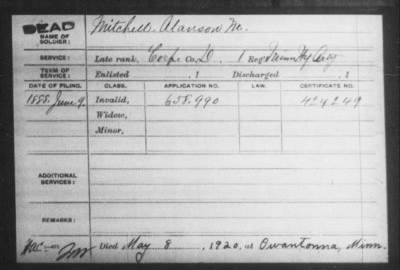 DEAD
NAME OF SOLDIER:
Mitchell, Alanson M.
SERVICE:
Late rank, Corp. Co. D, 1 Reg't Minn Hy Arty
TERM OF SERVICE:
Enlisted , 1 Discharged , 1
DATE OF FILING.
CLASS.
APPLICATION NO.
LAW.
CERTIFICATE NO.
1888. June 9.
Invalid,
658.990
424249
Widow,
Minor,
ADDITIONAL SERVICES:
REMARKS:
Died May 8, 1920, at Owantonna, Minn.